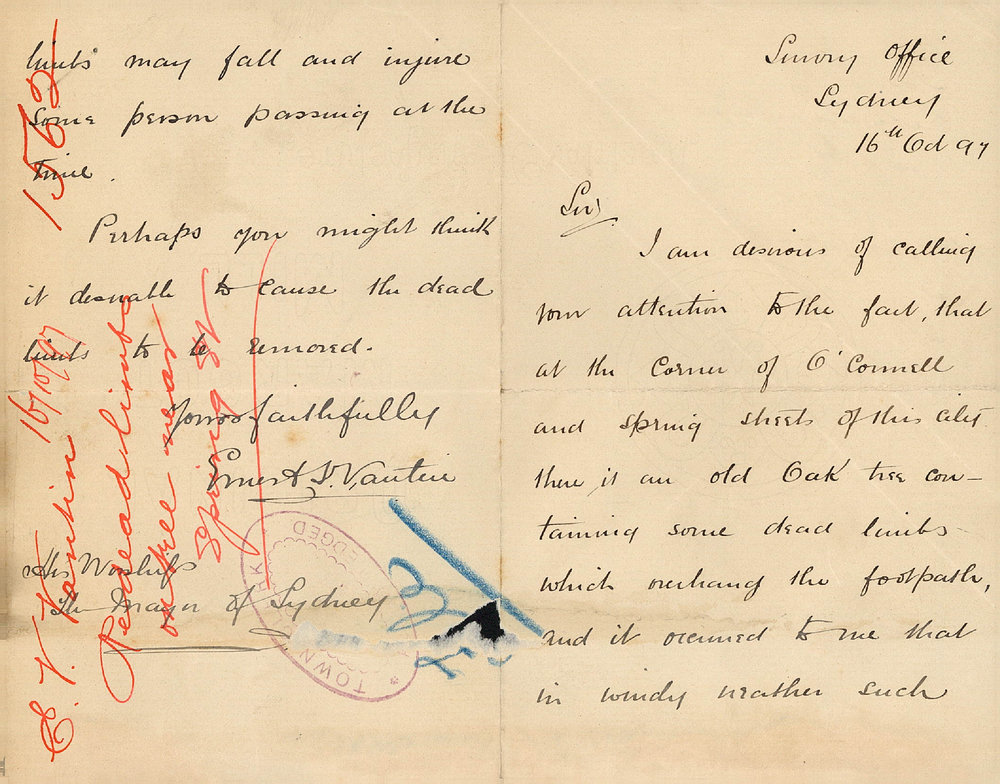 Survey Office
Sydney
16th Oct 97
Sir,
I am desirous of calling
your attention to the fact, that
at the Corner of O'Connell
and Spring Streets of this city
there is an old Oak tree con-
taining some dead limbs
which overhang the footpath,
and it occurred to me that
in windy weather such
limbs may fall and injure
some person passing at the
time.
Perhaps you might think
it desirable to cause the dead
limbs to be removed.
Yours faithfully
Ernest
His Worship
The Mayor of Sydney
1562
16/10/97
Re dead limbs
on tree near
Spring St
TOWN
EDGED